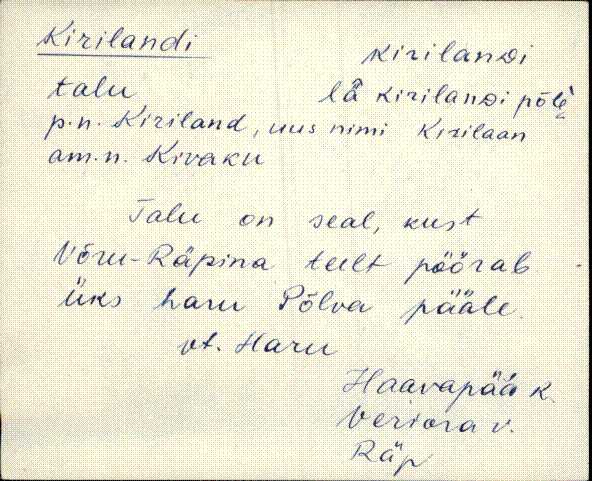 Kirilandi kirilanᴅi
talu lä̀ kirilanᴅi põlè
p.n. Kiriland, uus nimi Kirilaan
am.n. Kivaku
Talu on seal, kust
Võru-Räpina teelt pöörab
üks haru Põlva pääle.
vt. Haru
Haavapää k.
Veriora v.
Räp